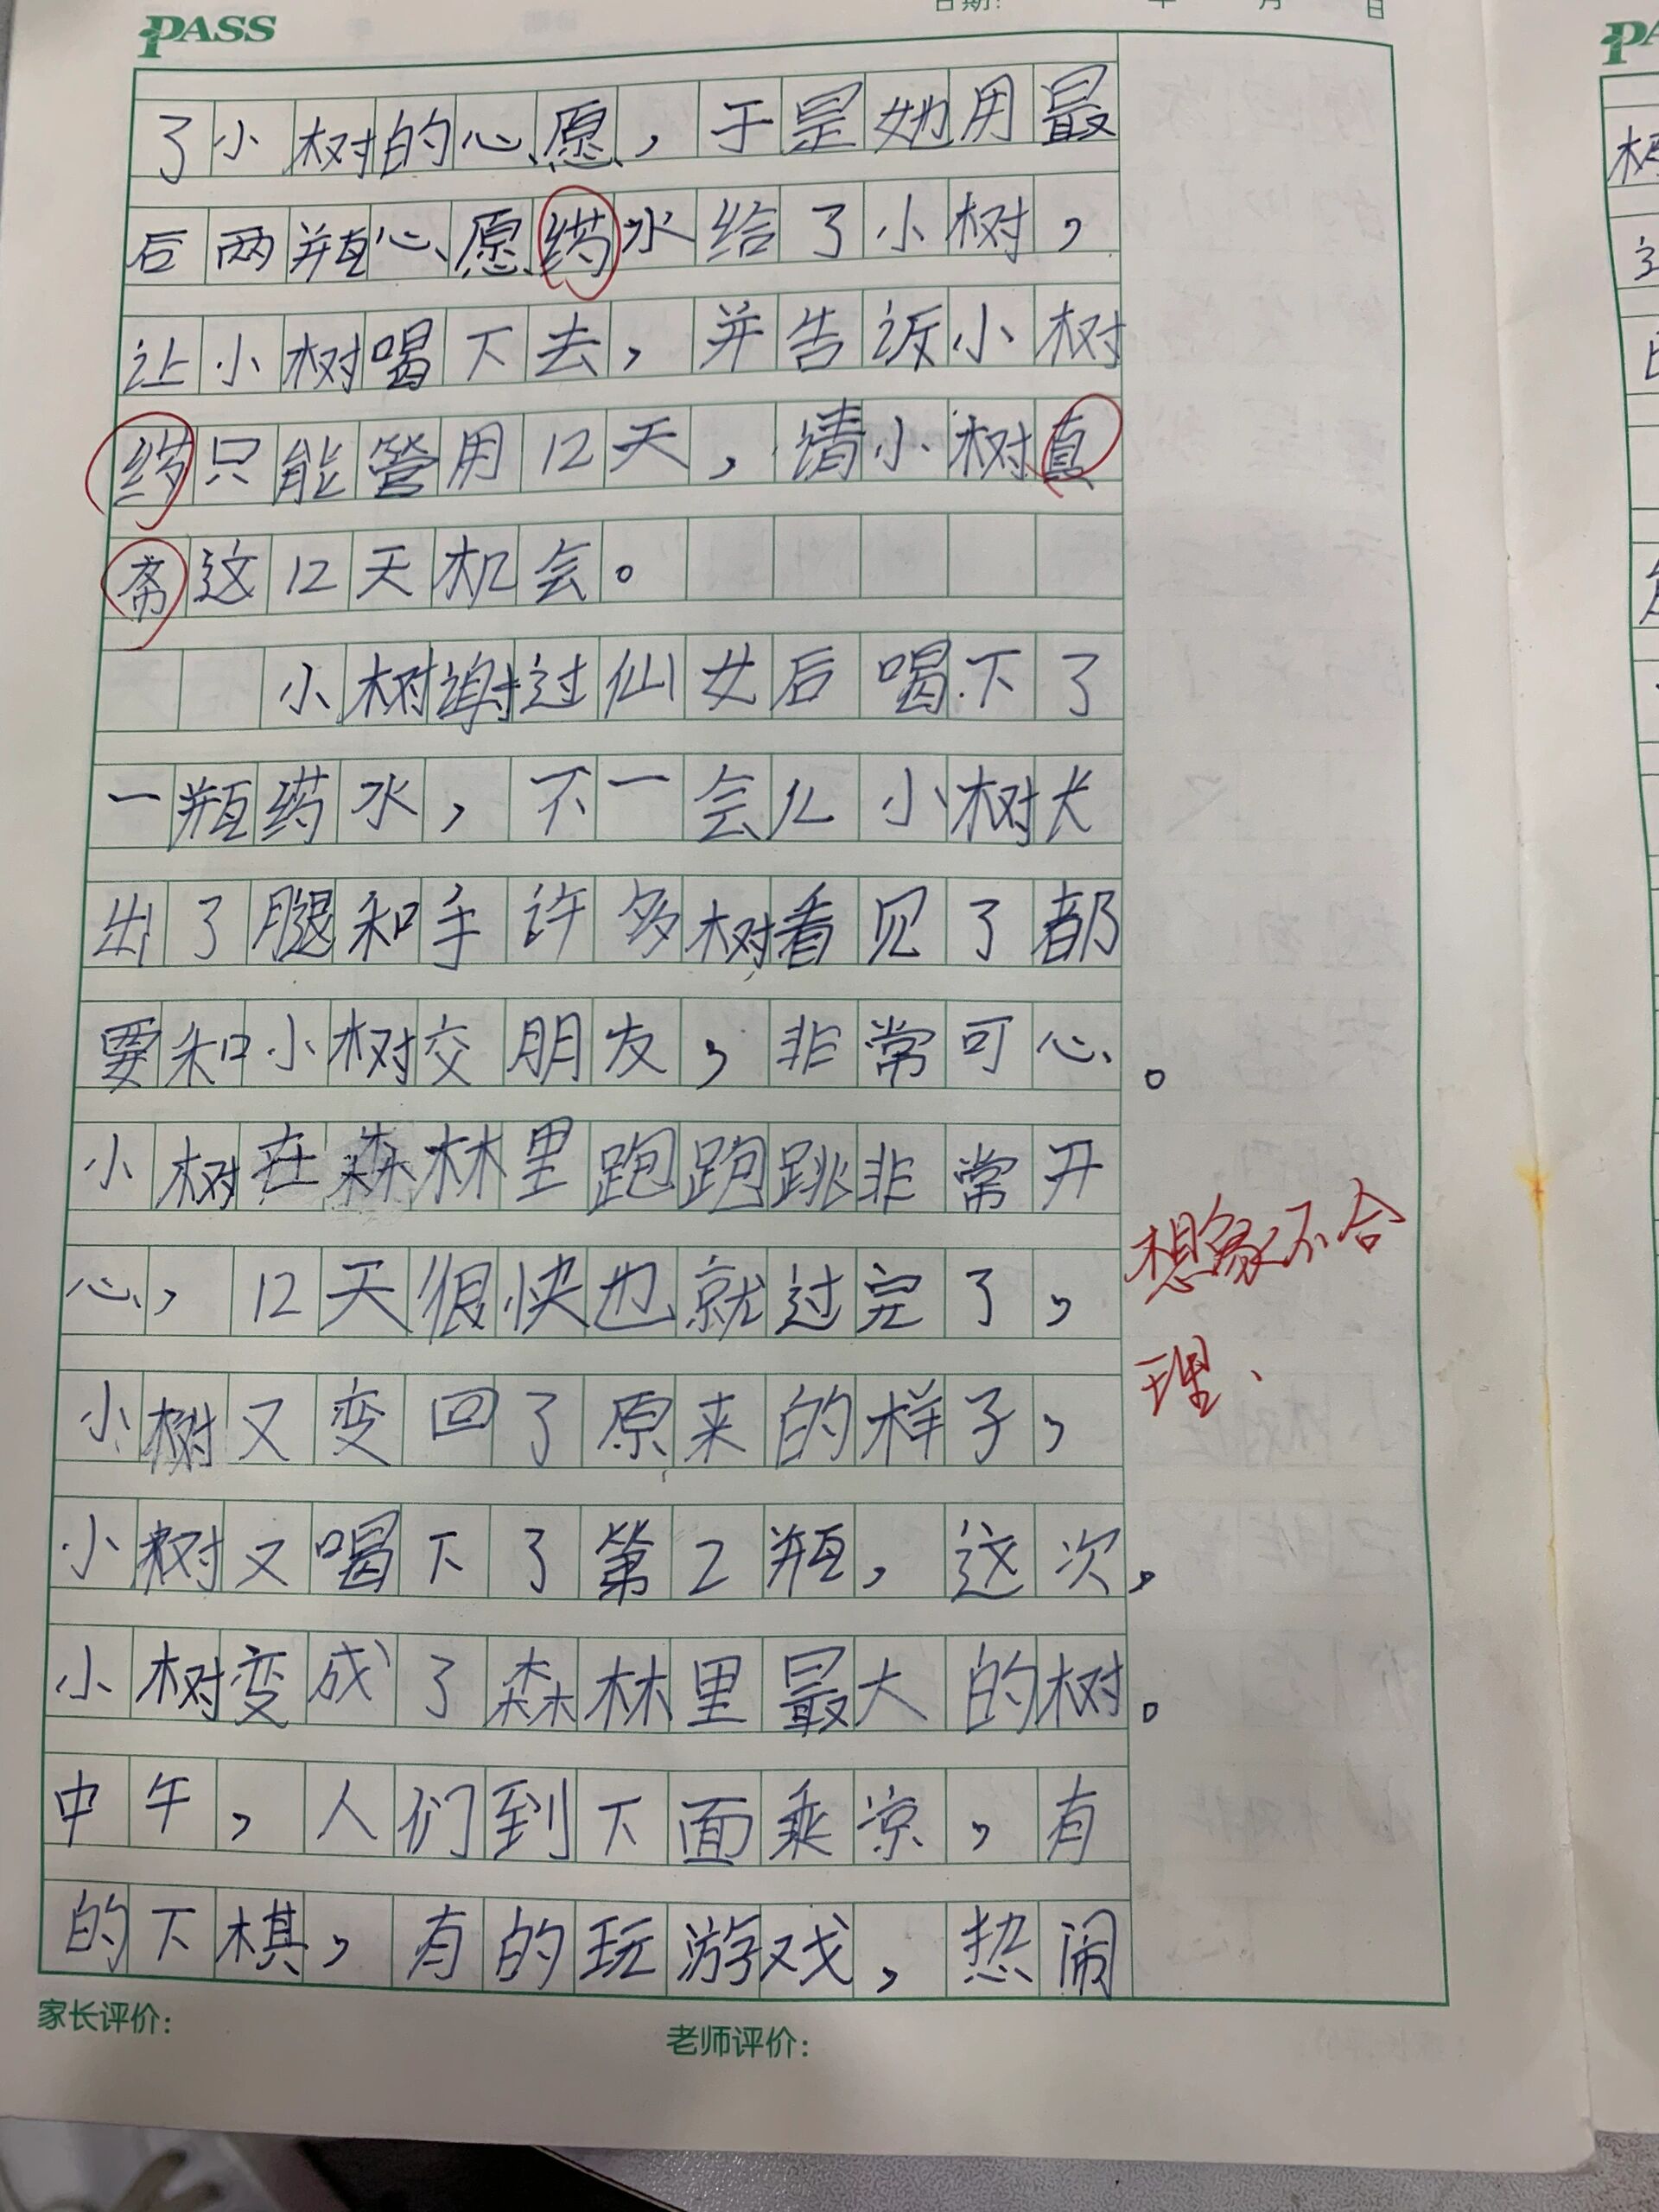 PASS
日期: 年 月 日
了小树的心愿，于是她用最
后两瓶心愿药水给了小树，
让小树喝下去，并告诉小树
药只能管用12天，请小树真
斋这12天机会。
小树谢过仙女后喝下了
一瓶药水，不一会儿小树长
出了腿和手许多树看见了都
要和小树交朋友，非常可心。
小树在森林里跑跑跳非常开
心，12天很快也就过完了，
小树又变回了原来的样子，
小树又喝下了第2瓶，这次，
小树变成了森林里最大的树。
中午，人们到下面乘凉，有
的下棋，有的玩游戏，热闹
想象不合
理、
家长评价:
老师评价: